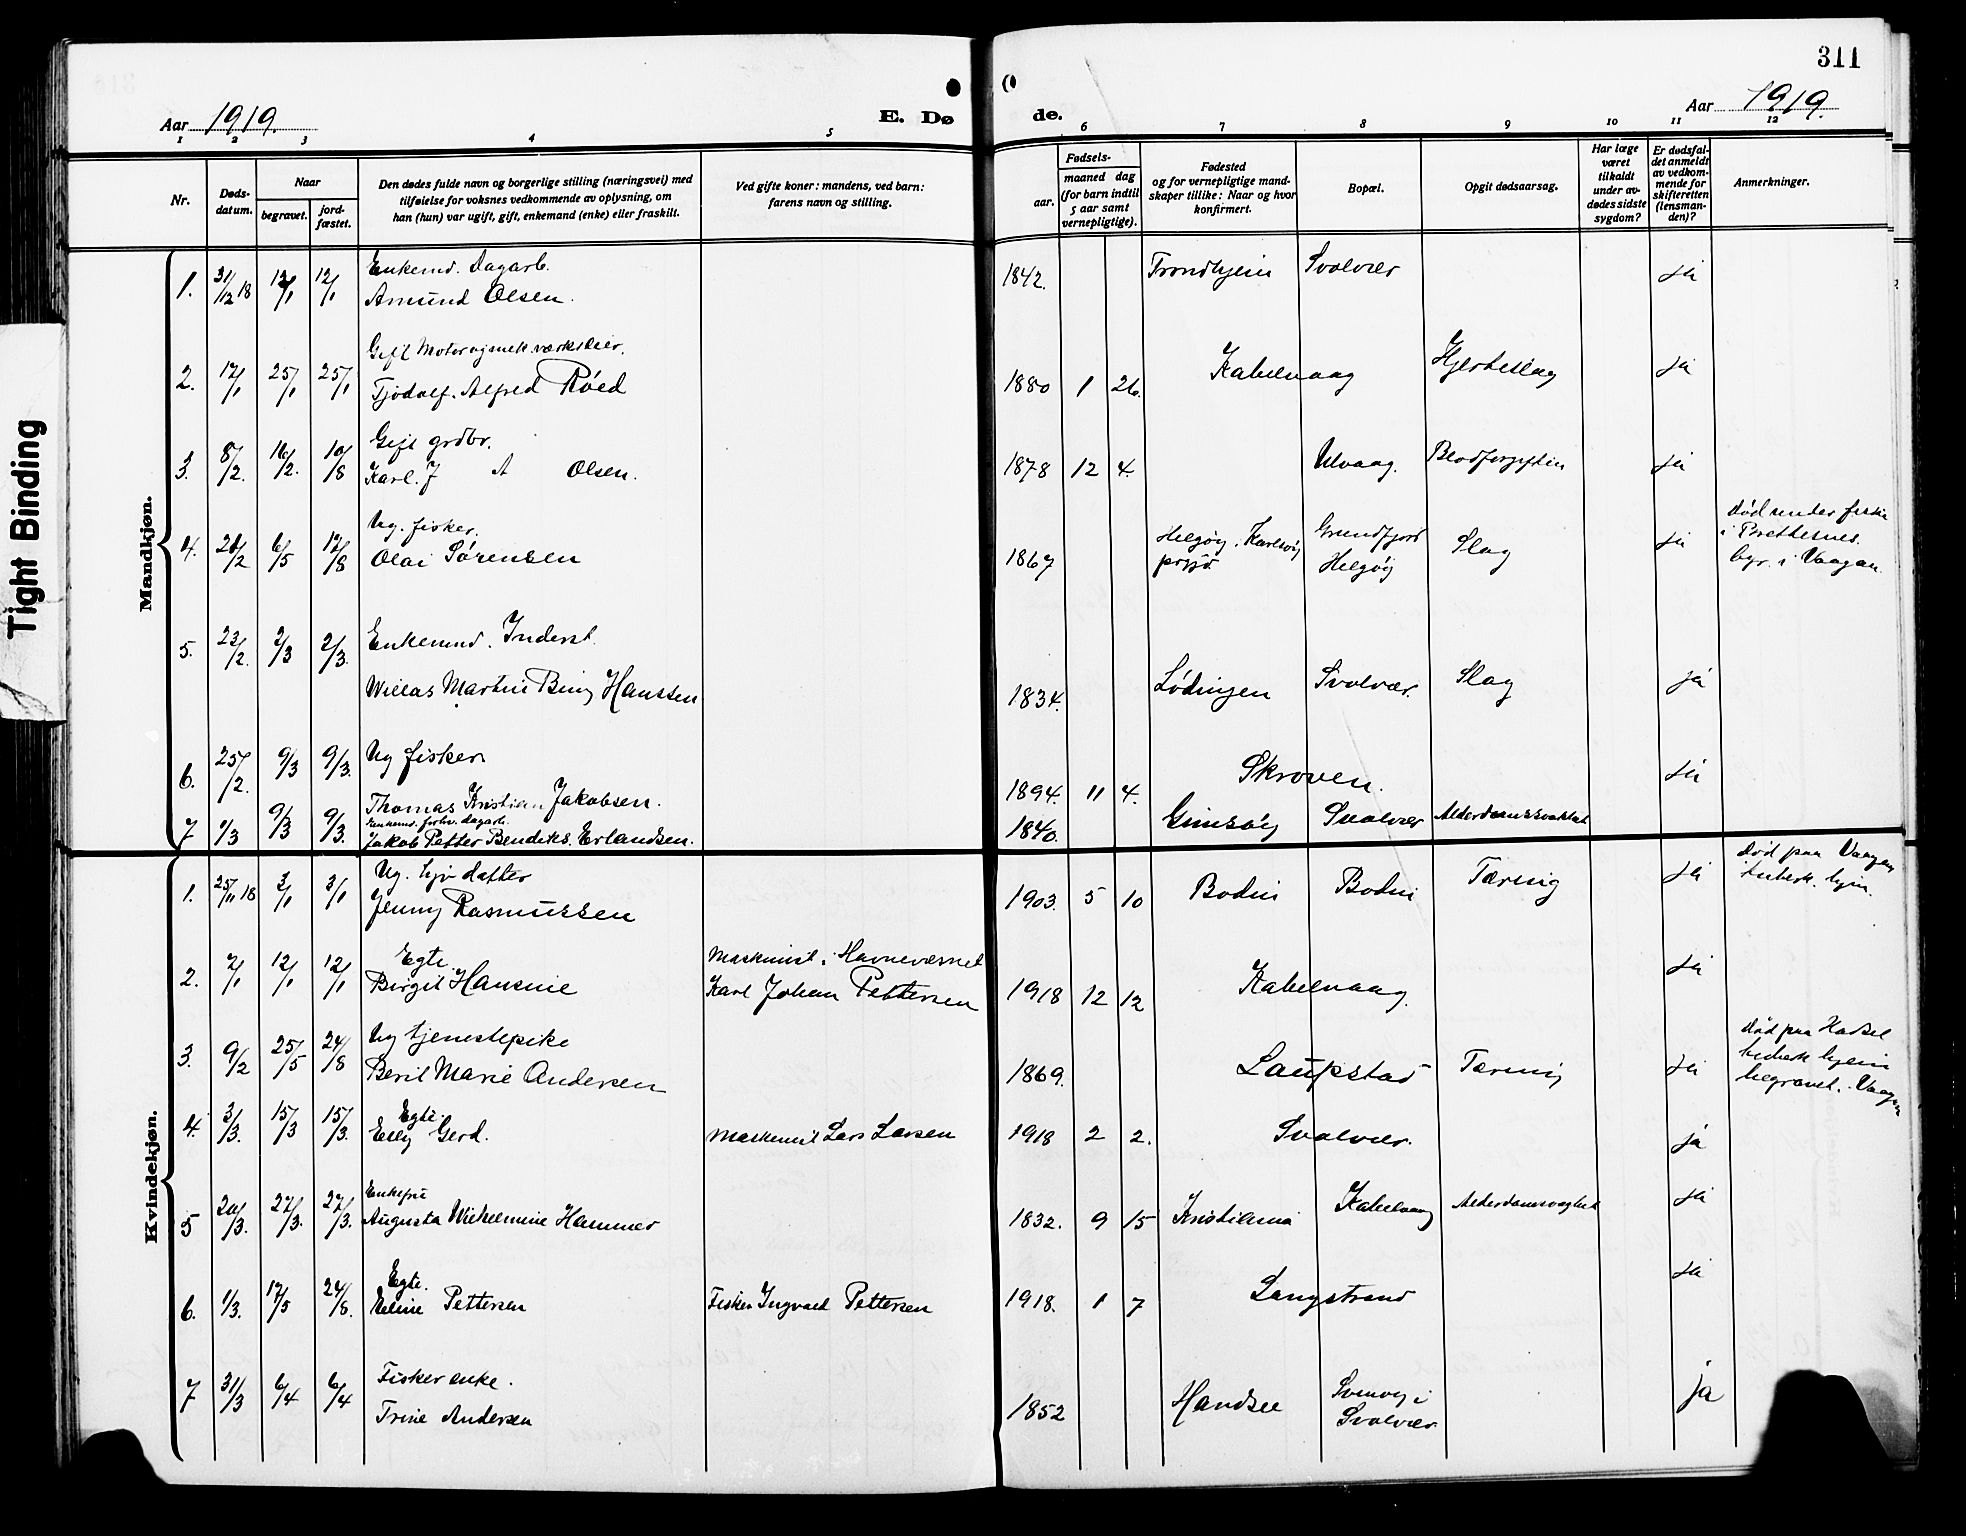 311
Aar 1919.
E. Dø
de.
Aar 1919.
1 2 3 4 5 6 7 8 9 10 11 12
Nr.
Døds-
datum.
Naar
begravet.
jord-
fæstet.
Den dødes fulde navn og borgerlige stilling (næringsvei) med
tilføielse for voksnes vedkommende av oplysning, om
han (hun) var ugift, gift, enkemand (enke) eller fraskilt.
Ved gifte koner: mandens, ved barn:
farens navn og stilling.
Fødsels-
aar.
maaned dag
(for barn indtil
5 aar samt
vernepligtige).
Fødested
og for vernepligtige mand-
skaper tillike: Naar og hvor
konfirmert.
Bopæl.
Opgit dødsaarsag.
Har læge
været
tilkaldt
under av-
dødes sidste
sygdom?
Er dødsfal-
det anmeldt
av vedkom-
mende for
skifteretten
(lensman-
den)?
Anmerkninger.
Tight Binding
Mandkjøn.
1. 31/12 18 12/1 12/1 Enkemd. Dagarb.
Amund Olsen. 1842. Trondhjem Svolvær ja
2. 17/1 25/1 25/1 Gift
Tjodolf. Alfred Röed 1880 1 26. Kabelvaag Hjerteslag ja
3. 8/2. 16/2. 10/8 Gift grdbr.
Karl. J A Olsen. 1878 12 4. Ulvaag. Blodforgiftn ja
4. 21/2 6/5 17/8 Ug. fisker.
Olai Sörensen 1867 Helgöy. Karlsöy
prgjd. Grundfjord
Helgöy Slag ja død under fiske
i Brettesnes.
begr. i Vaagan.
5. 23/2. 2/3 2/3. Enkemd. Inderst.
Martin Hanssen 1834. Lödingen Svolvær. Slag ja
6. 25/2. 9/3 9/3. Ug fisker
Thomas Kristian Jakobsen. 1894. 11 4. Skroven. ja
7 1/3 9/3 9/3. Enkemd. forhv. dagarb.
Jakob Petter Bendiks. Erlandsen. 1840. Gimsöy Svolvær Alderdomssvakhet
Kvindekjøn.
1. 25/11 18 3/1 3/1 Ug. hjv datter
Jenny Rasmussen 1903. 5 10 Bodin Bodin Tæring ja død paa Vaagan
tuberk. hjem.
2. 7/1 12/1 12/1 Egte
Birgit Hansine Maskinist i Havnevæsnet
Karl Johan Pettersen 1918 12 12 Kabelvaag. ja
3. 9/2 25/5 24/8 Ug tjenestepike
Beril Marie Andersen 1869. Laupstad Tæring ja død paa Hadsel
tuberk hjem
begravet. Vaagan
4. 3/3. 15/3 15/3. Egte.
Elly Gerd. Maskinist Lars Larsen 1918 2 2. Svolvær. ja
5 20/3. 27/3. 27/3. Enkefru
Augusta Wilhelmine Hammer 1832. 9 15 Kristiania Kabelvaag Alderdomssvaghet ja
6. 1/3. 17/5 24/8. Egte.
Pettersen Fisker Ingvald Pettersen 1918. 1 7 Langstrand ja
7 31/3 6/4 6/4 Fisker enke.
Trine Andersen 1852 Svinöy i
Svolvær. ja